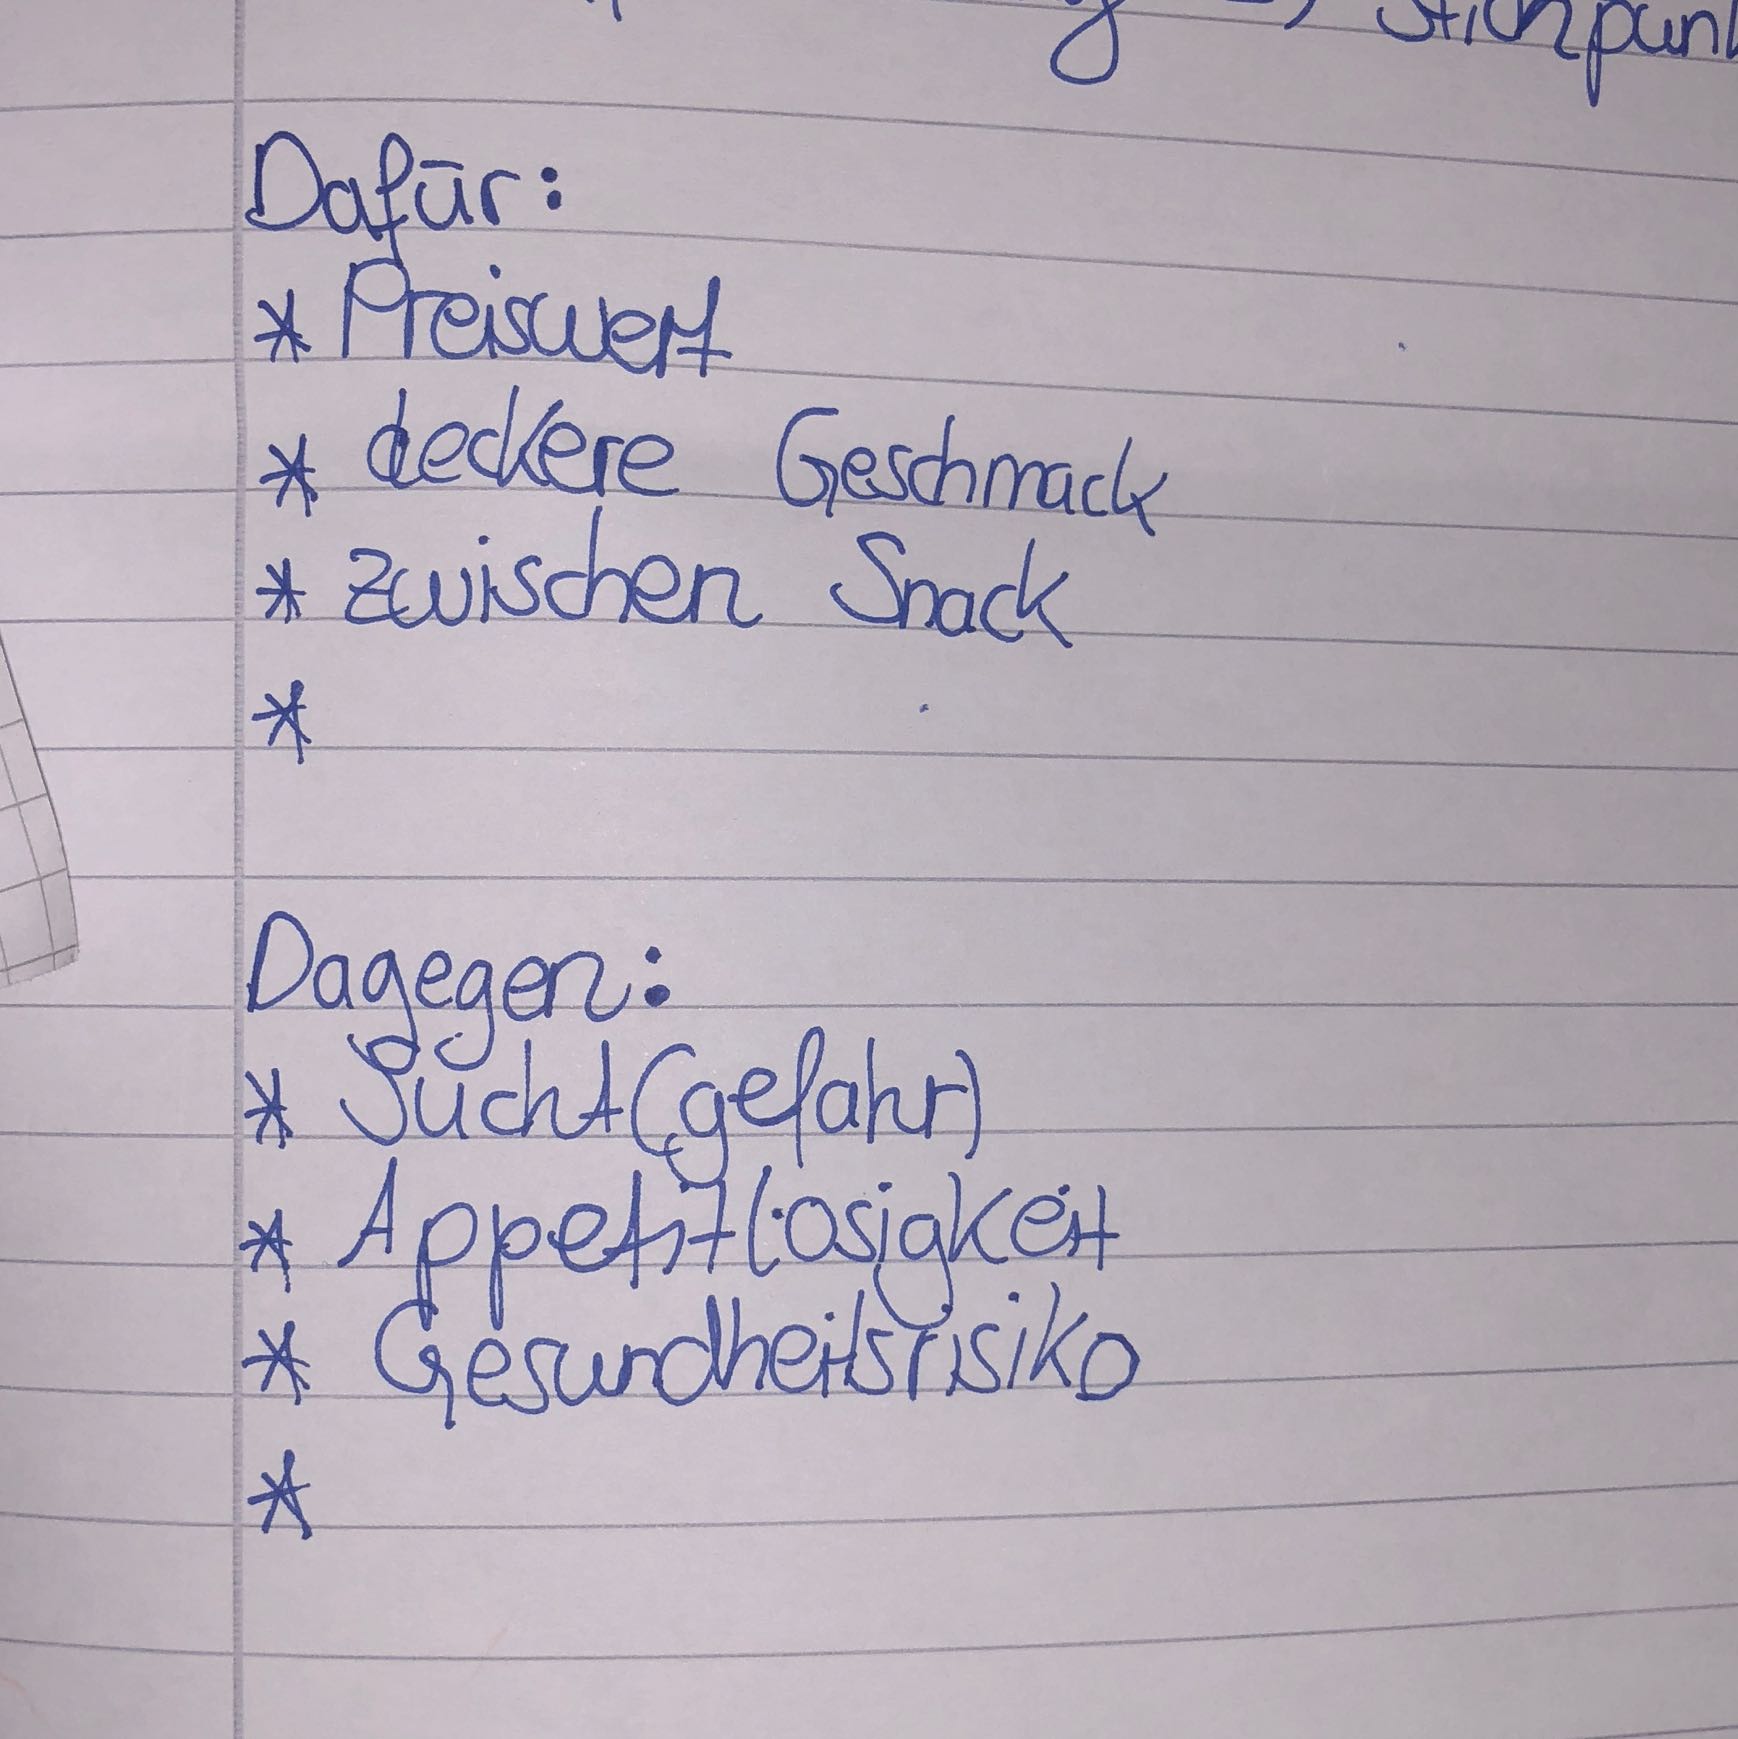 Stichpun
Dafür:
* Preiswert
* leckere Geschmack
* zwischen Snack
*
Dagegen:
* Sucht(gefahr)
* Appetitlosigkeit
* Gesundheitsrisiko
*